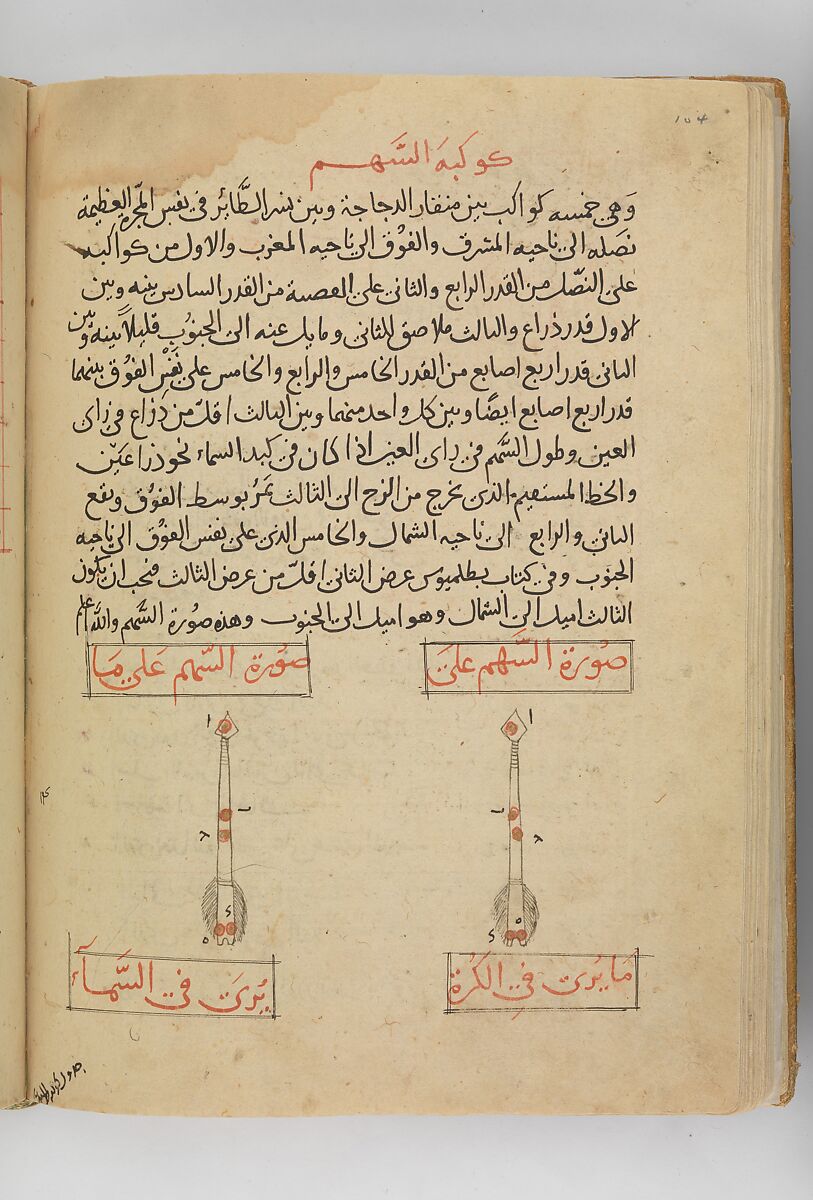 ١٥٤
كوكبة السَّهم
وَهي خمسه كواكب بين منقار الدجاجة وبين نسر الطَّائر في نفس المجرة العظيمة
نصَله الى ناحيه المشرق والفوُق الى ناحيه المغرب والاول من كواكبه
على النصّل من القدر الرابع والثاني على القصبة من القدر السادس بينه وبين
الاول قدر ذراع والثالث ملاصق للثاني ومايل عنه الى الجنوُب قليلاً بينه وبين
الثاني قدر اربع اصابع من القدر الخامس والرابع والخامس على نفَس الفوُق بينهما
قدر اربع اصابع ايضًا وبين كل واحد منهما وبين الثالث اقلّ من ذِراع في راى
العين وطول السَّهم في راى العين اذا كان في كبد السماء نحو ذراعَين
والخط المستقيم الذي يخرج من الزج الى الثالث يمرُ بوسط الفوُق ويقع
الثاني والرابع الى ناحيه الشمال والخامس الذي على نفس الفوُق الى ناحيه
الجنوب وفي كتاب بطلميوس عرض الثاني اقلّ من عرض الثالث فيجب ان يكوُن
الثالث اميل الى الشمال وهو اميل الى الجنوب وهذه صوُرة السَّهم والله اعلم
صوُرة السَّهم علىَ
صوُرة السَّهم عَلى مَا
ا
ا
ب
ب
ح
ح
ه
د
د
ه
مَا يُرى في الكُرة
يُرىَ في السَّمآء